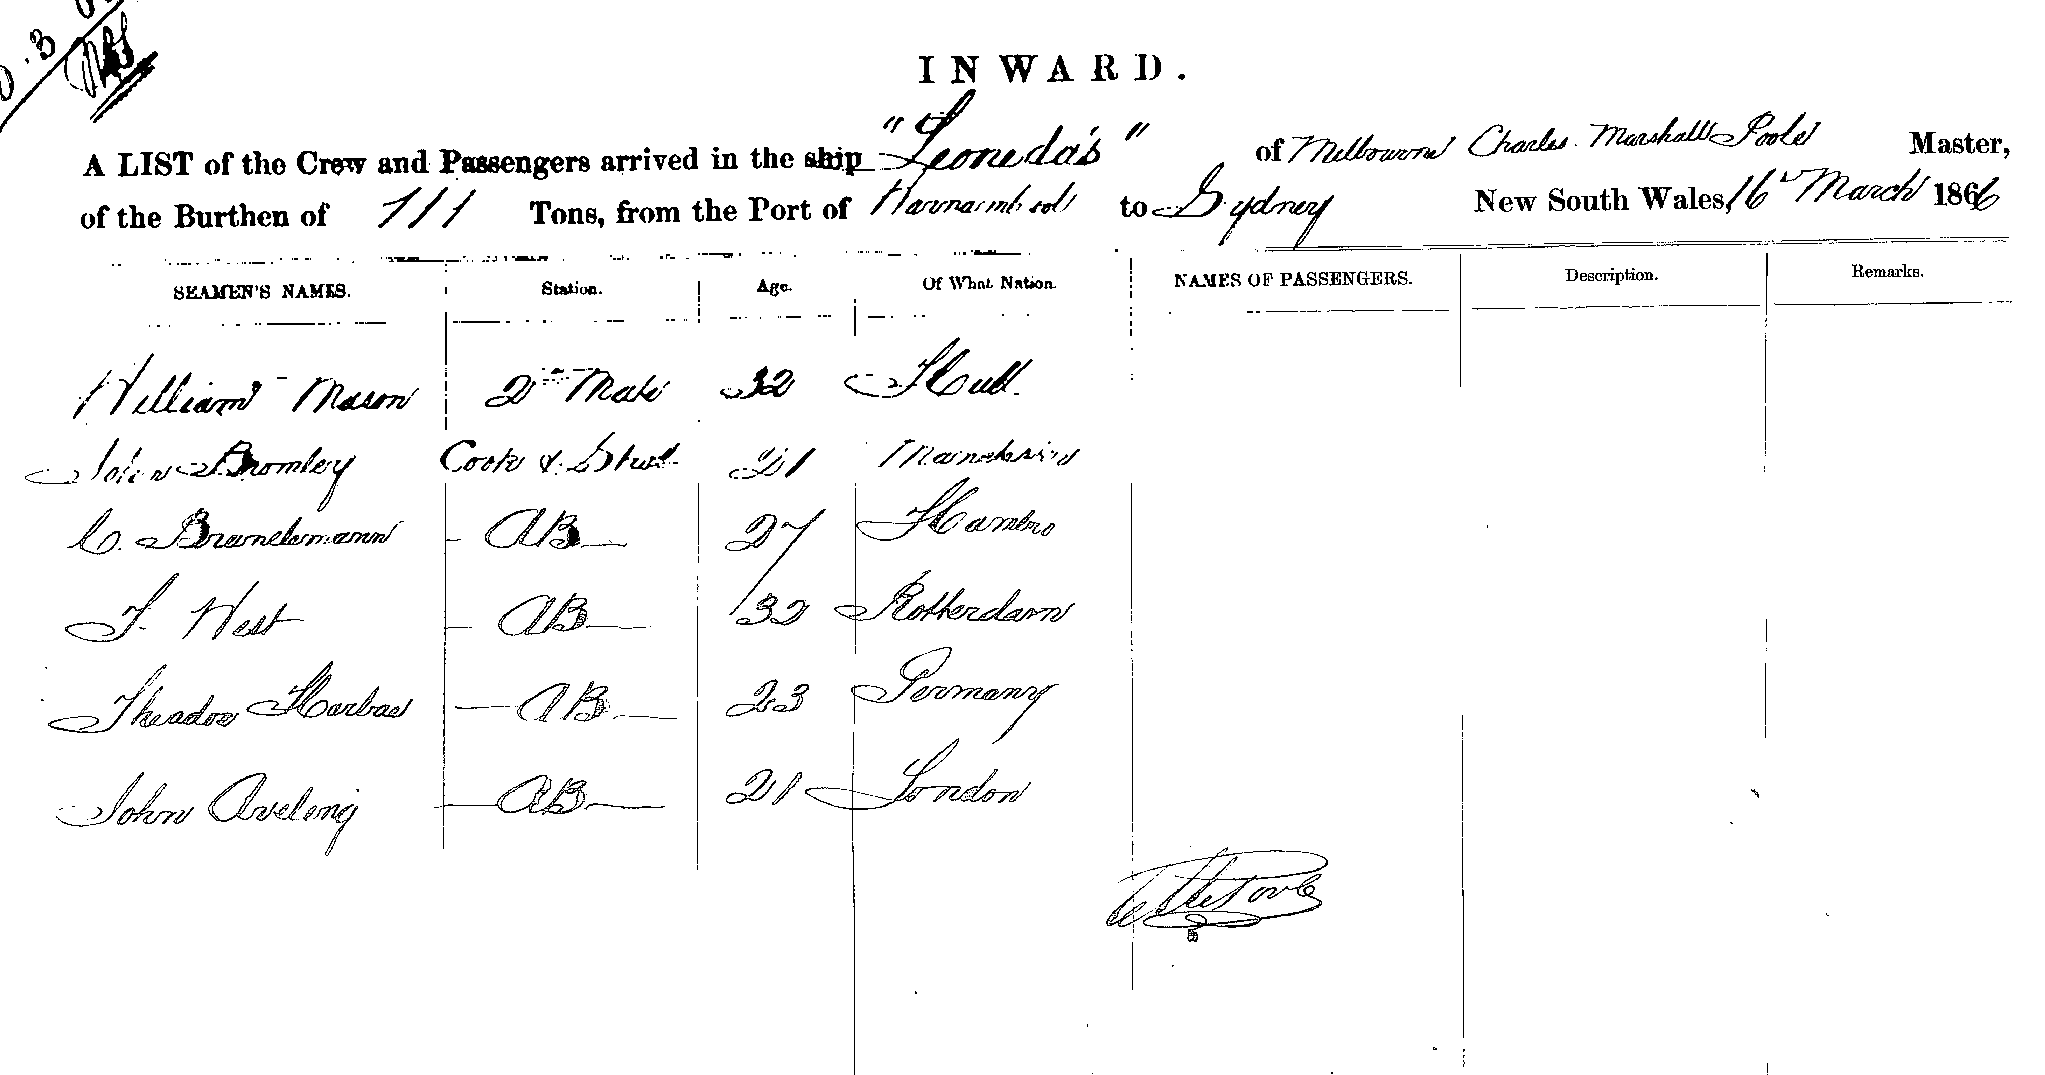 INWARD.
A LIST of the Crew and Passengers arrived in the ship "Leonidas" of Melbourne Charles Marshall Poole Master,
of the Burthen of 111 Tons, from the Port of Warrnambool to Sydney New South Wales, 16 March 1866
SEAMEN'S NAMES. Station. Age. Of What Nation. NAMES OF PASSENGERS. Description. Remarks.
William Mason 2nd Mate 32 Hull.
John Bromley Cook & Stwd 21 Manchester
C. Brandemann AB 27 Hambro
J. West AB 32 Rotterdam
Theadore AB 23 Germany
John Aveling AB 21 London
Poole